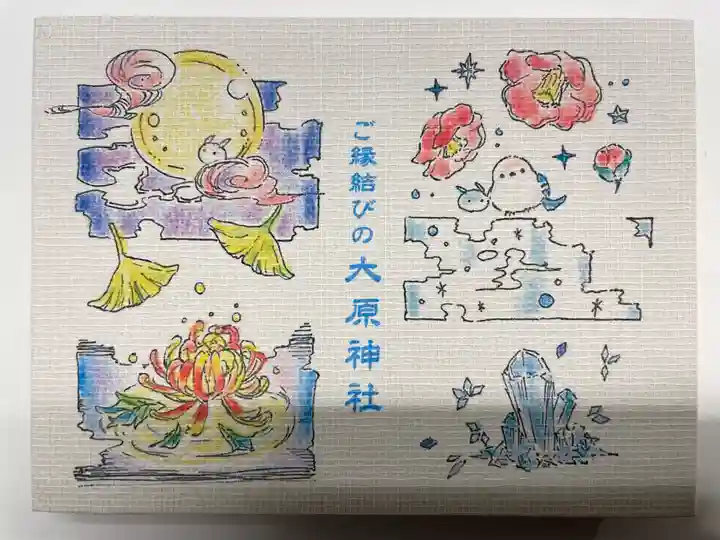 ご縁結びの大原神社